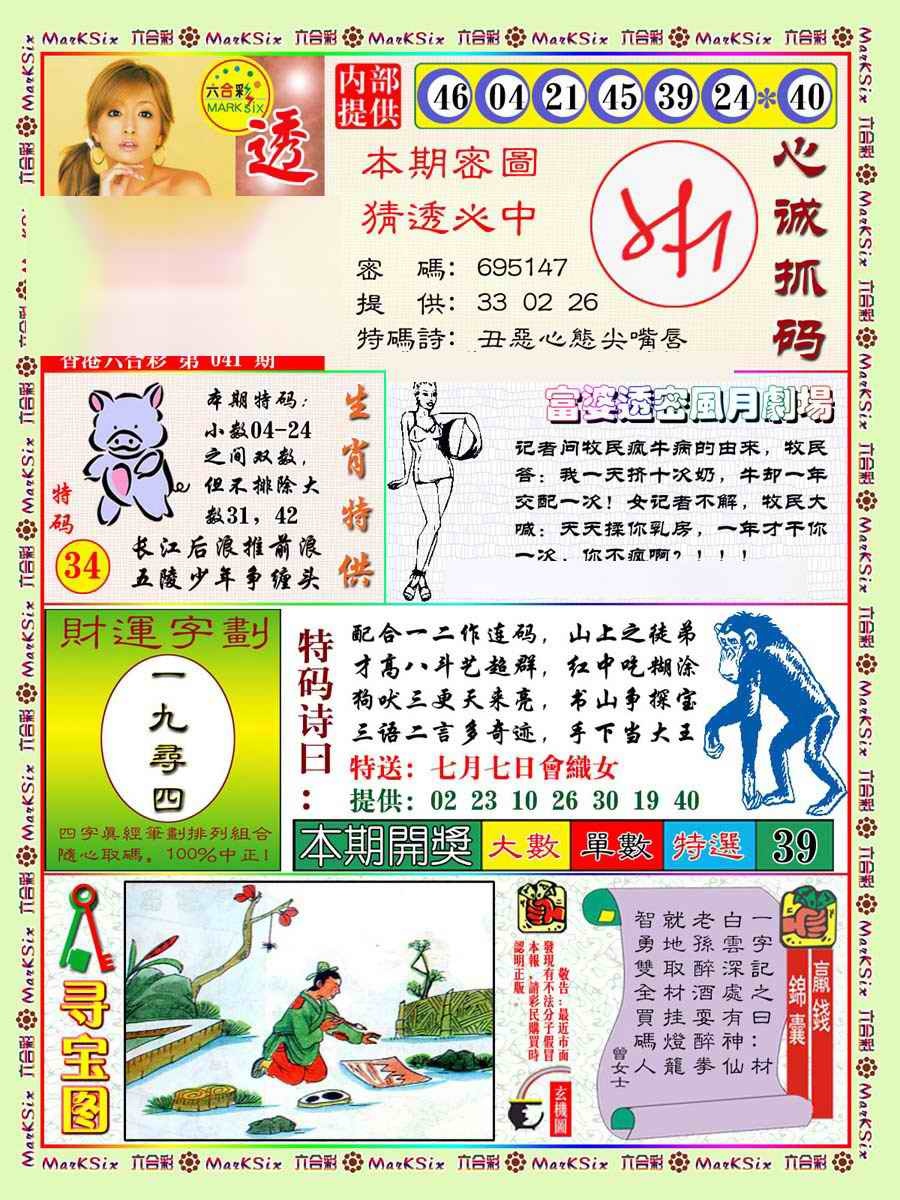 MarKSix 六合彩 MarKSix 六合彩 MarKSix 六合彩 MarKSix 六合彩 MarKSix 六合彩
六合彩
MARK SIX
透
内部
提供
46 04 21 45 39 24*40
本期密圖
猜透必中
密 碼: 695147
提 供: 33 02 26
特碼詩: 丑惡心態尖嘴唇
心诚抓码
香港六合彩 第 041 期
本期特码:
小数04-24
之间双数,
但不排除大
数31, 42
长江后浪推前浪
五陵少年争缠头
特码
34
生肖特供
富婆透密風月劇場
记者问牧民疯牛病的由来, 牧民
答: 我一天挤十次奶, 牛却一年
交配一次! 女记者不解, 牧民大
喊: 天天揉你乳房, 一年才干你
一次, 你不疯啊?!!!
財運字劃
一九尋四
四字真經筆劃排列組合
隨心取碼。100%中正!
特码诗曰:
配合一二作连码, 山上之徒弟
才高八斗艺超群, 红中吃糊涂
狗吠三更天来亮, 书山争探宝
三语二言多奇迹, 手下当大王
特送: 七月七日會織女
提供: 02 23 10 26 30 19 40
本期開獎 大數 單數 特選 39
寻宝图
敬告:最近市面
發現有不法分子假冒
本報,請彩民購買時
認明正版。
玄機圖
一字記之曰:材
白雲深處有神仙
老孫醉酒耍醉拳
就地取材挂燈籠
智勇雙全買碼人
曾女士
贏錢
錦囊
MarKSix 六合彩 MarKSix 六合彩 MarKSix 六合彩 MarKSix 六合彩 MarKSix 六合彩